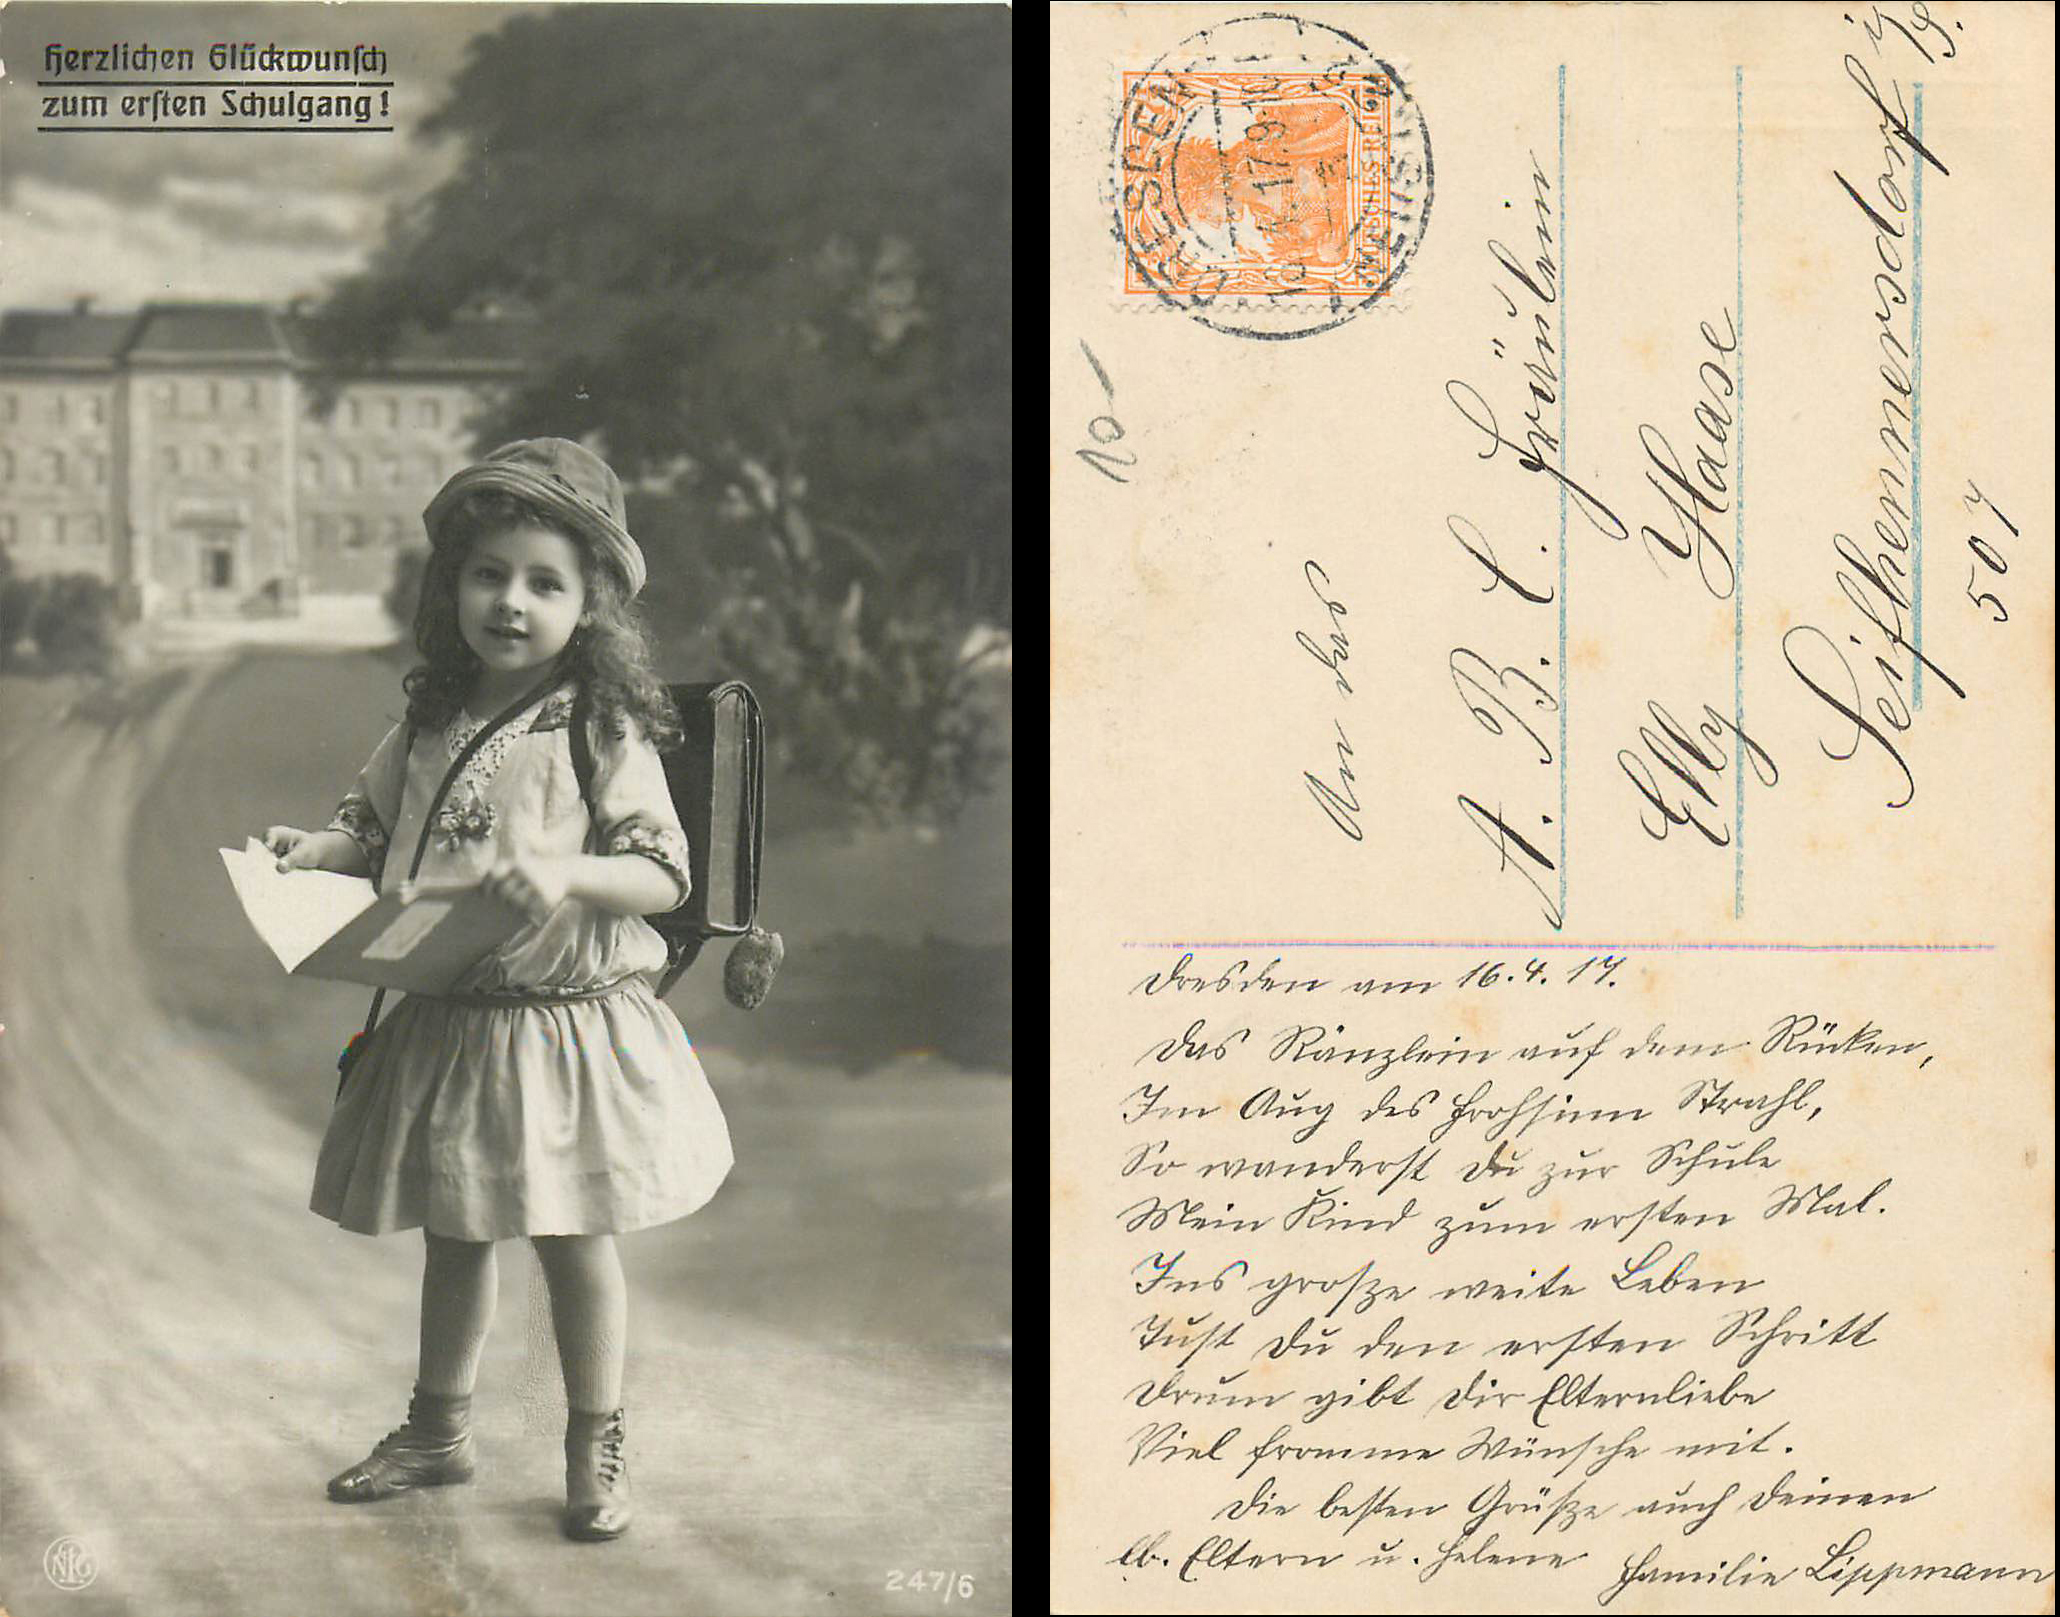 Herzlichen Glückwunsch
zum ersten Schulgang!
NPG
247/6
DRESDEN-ALTST.
16.4.17.9-10
DEUTSCHES REICH
10-
An das
A. B. C. Fräulein
Elly Haase
Seifhennersdorf i/S.
507
Dresden am 16.4.17.
Das Ränzlein auf dem Rücken,
Im Aug des Frohsinn Strahl,
So wanderst Du zur Schule
Mein Kind zum ersten Mal.
Ins grosze weite Leben
Tust Du den ersten Schritt
Drum gibt Dir Elternliebe
Viel fromme Wünsche mit.
Die besten Grüsze auch Deinen
lb. Eltern u. Helene Familie Lippmann